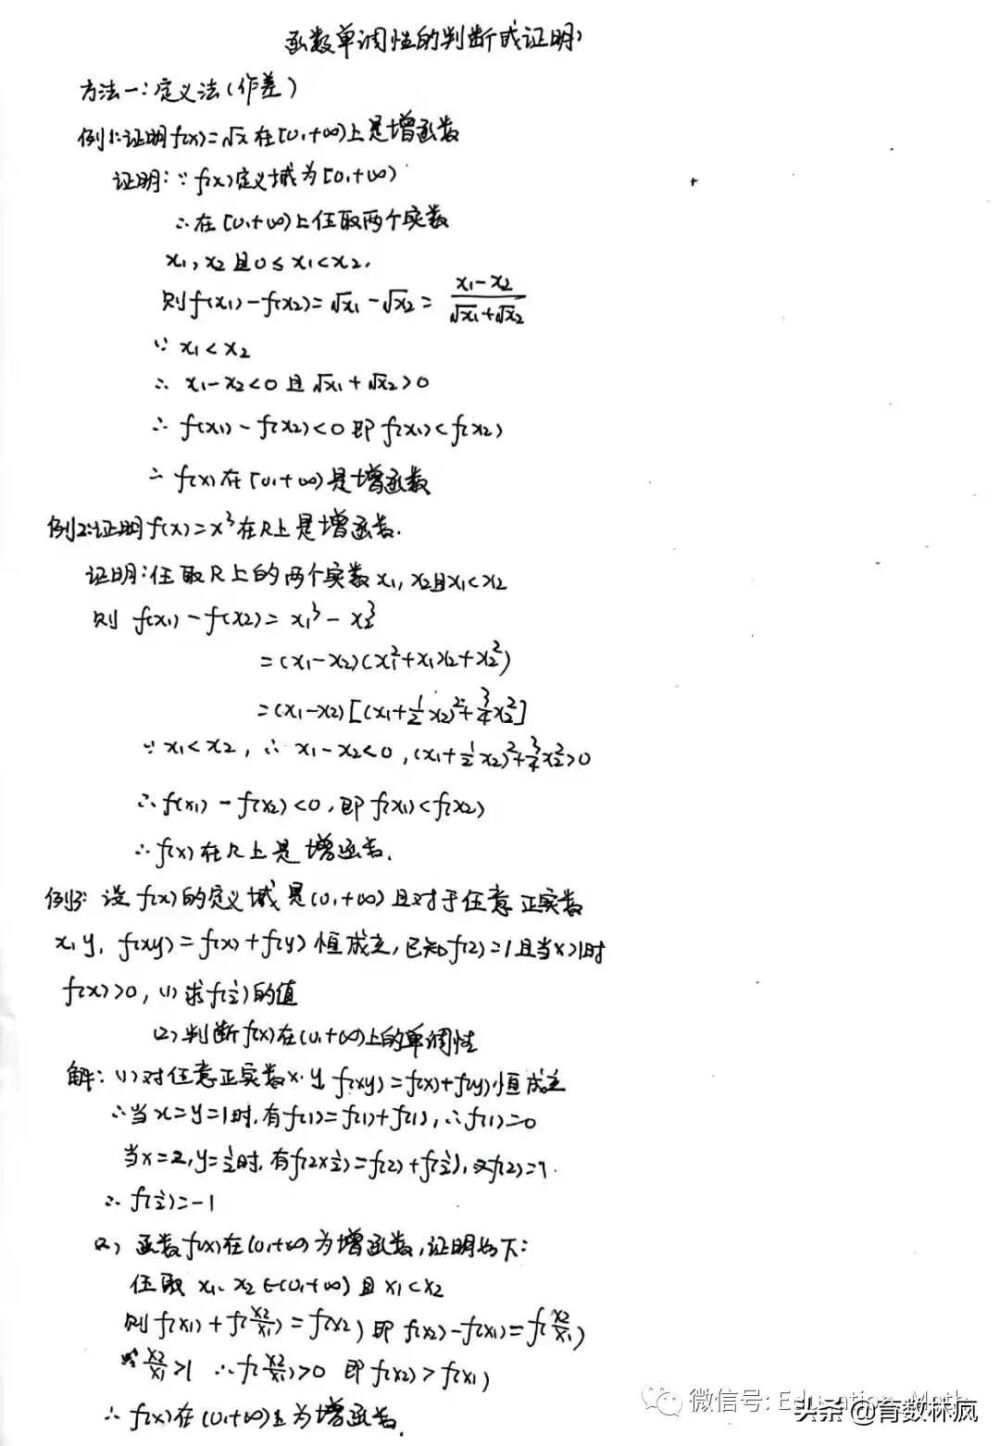 函数单调性的判断或证明
方法一:定义法(作差)
例1:证明f(x)=√x在[0,+∞)上是增函数
证明:∵f(x)定义域为[0,+∞)
∴在[0,+∞)上任取两个实数
x₁,x₂且0≤x₁<x₂.
则f(x₁)-f(x₂)=√x₁-√x₂=(x₁-x₂)/(√x₁+√x₂)
∵x₁<x₂
∴x₁-x₂<0且√x₁+√x₂>0
∴f(x₁)-f(x₂)<0即f(x₁)<f(x₂)
∴f(x)在[0,+∞)是增函数
例2:证明f(x)=x³在R上是增函数.
证明:任取R上的两个实数x₁,x₂且x₁<x₂
则f(x₁)-f(x₂)=x₁³-x₂³
=(x₁-x₂)(x₁²+x₁x₂+x₂²)
=(x₁-x₂)[(x₁+½x₂)²+¾x₂²]
∵x₁<x₂,∴x₁-x₂<0,(x₁+½x₂)²+¾x₂²>0
∴f(x₁)-f(x₂)<0,即f(x₁)<f(x₂)
∴f(x)在R上是增函数.
例3:设f(x)的定义域是(0,+∞)且对于任意正实数
x,y,f(xy)=f(x)+f(y)恒成立,已知f(2)=1且当x>1时
f(x)>0,(1)求f(½)的值
(2)判断f(x)在(0,+∞)上的单调性
解:(1)对任意正实数x.y f(xy)=f(x)+f(y)恒成立
∴当x=y=1时,有f(1)=f(1)+f(1),∴f(1)=0
当x=2,y=½时,有f(2×½)=f(2)+f(½),又f(2)=1.
∴f(½)=-1
(2)函数f(x)在(0,+∞)为增函数,证明如下:
任取x₁、x₂∈(0,+∞)且x₁<x₂
则f(x₁)+f(x₂/x₁)=f(x₂)即f(x₂)-f(x₁)=f(x₂/x₁)
∵x₂/x₁>1 ∴f(x₂/x₁)>0 即f(x₂)>f(x₁)
∴f(x)在(0,+∞)上为增函数.
微信号: Education_Math
头条@育数林疯